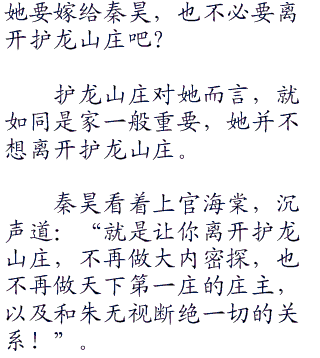 她要嫁给秦昊，也不必要离
开护龙山庄吧？
护龙山庄对她而言，就
如同是家一般重要，她并不
想离开护龙山庄。
秦昊看着上官海棠，沉
声道：“就是让你离开护龙
山庄，不再做大内密探，也
不再做天下第一庄的庄主，
以及和朱无视断绝一切的关
系！”。